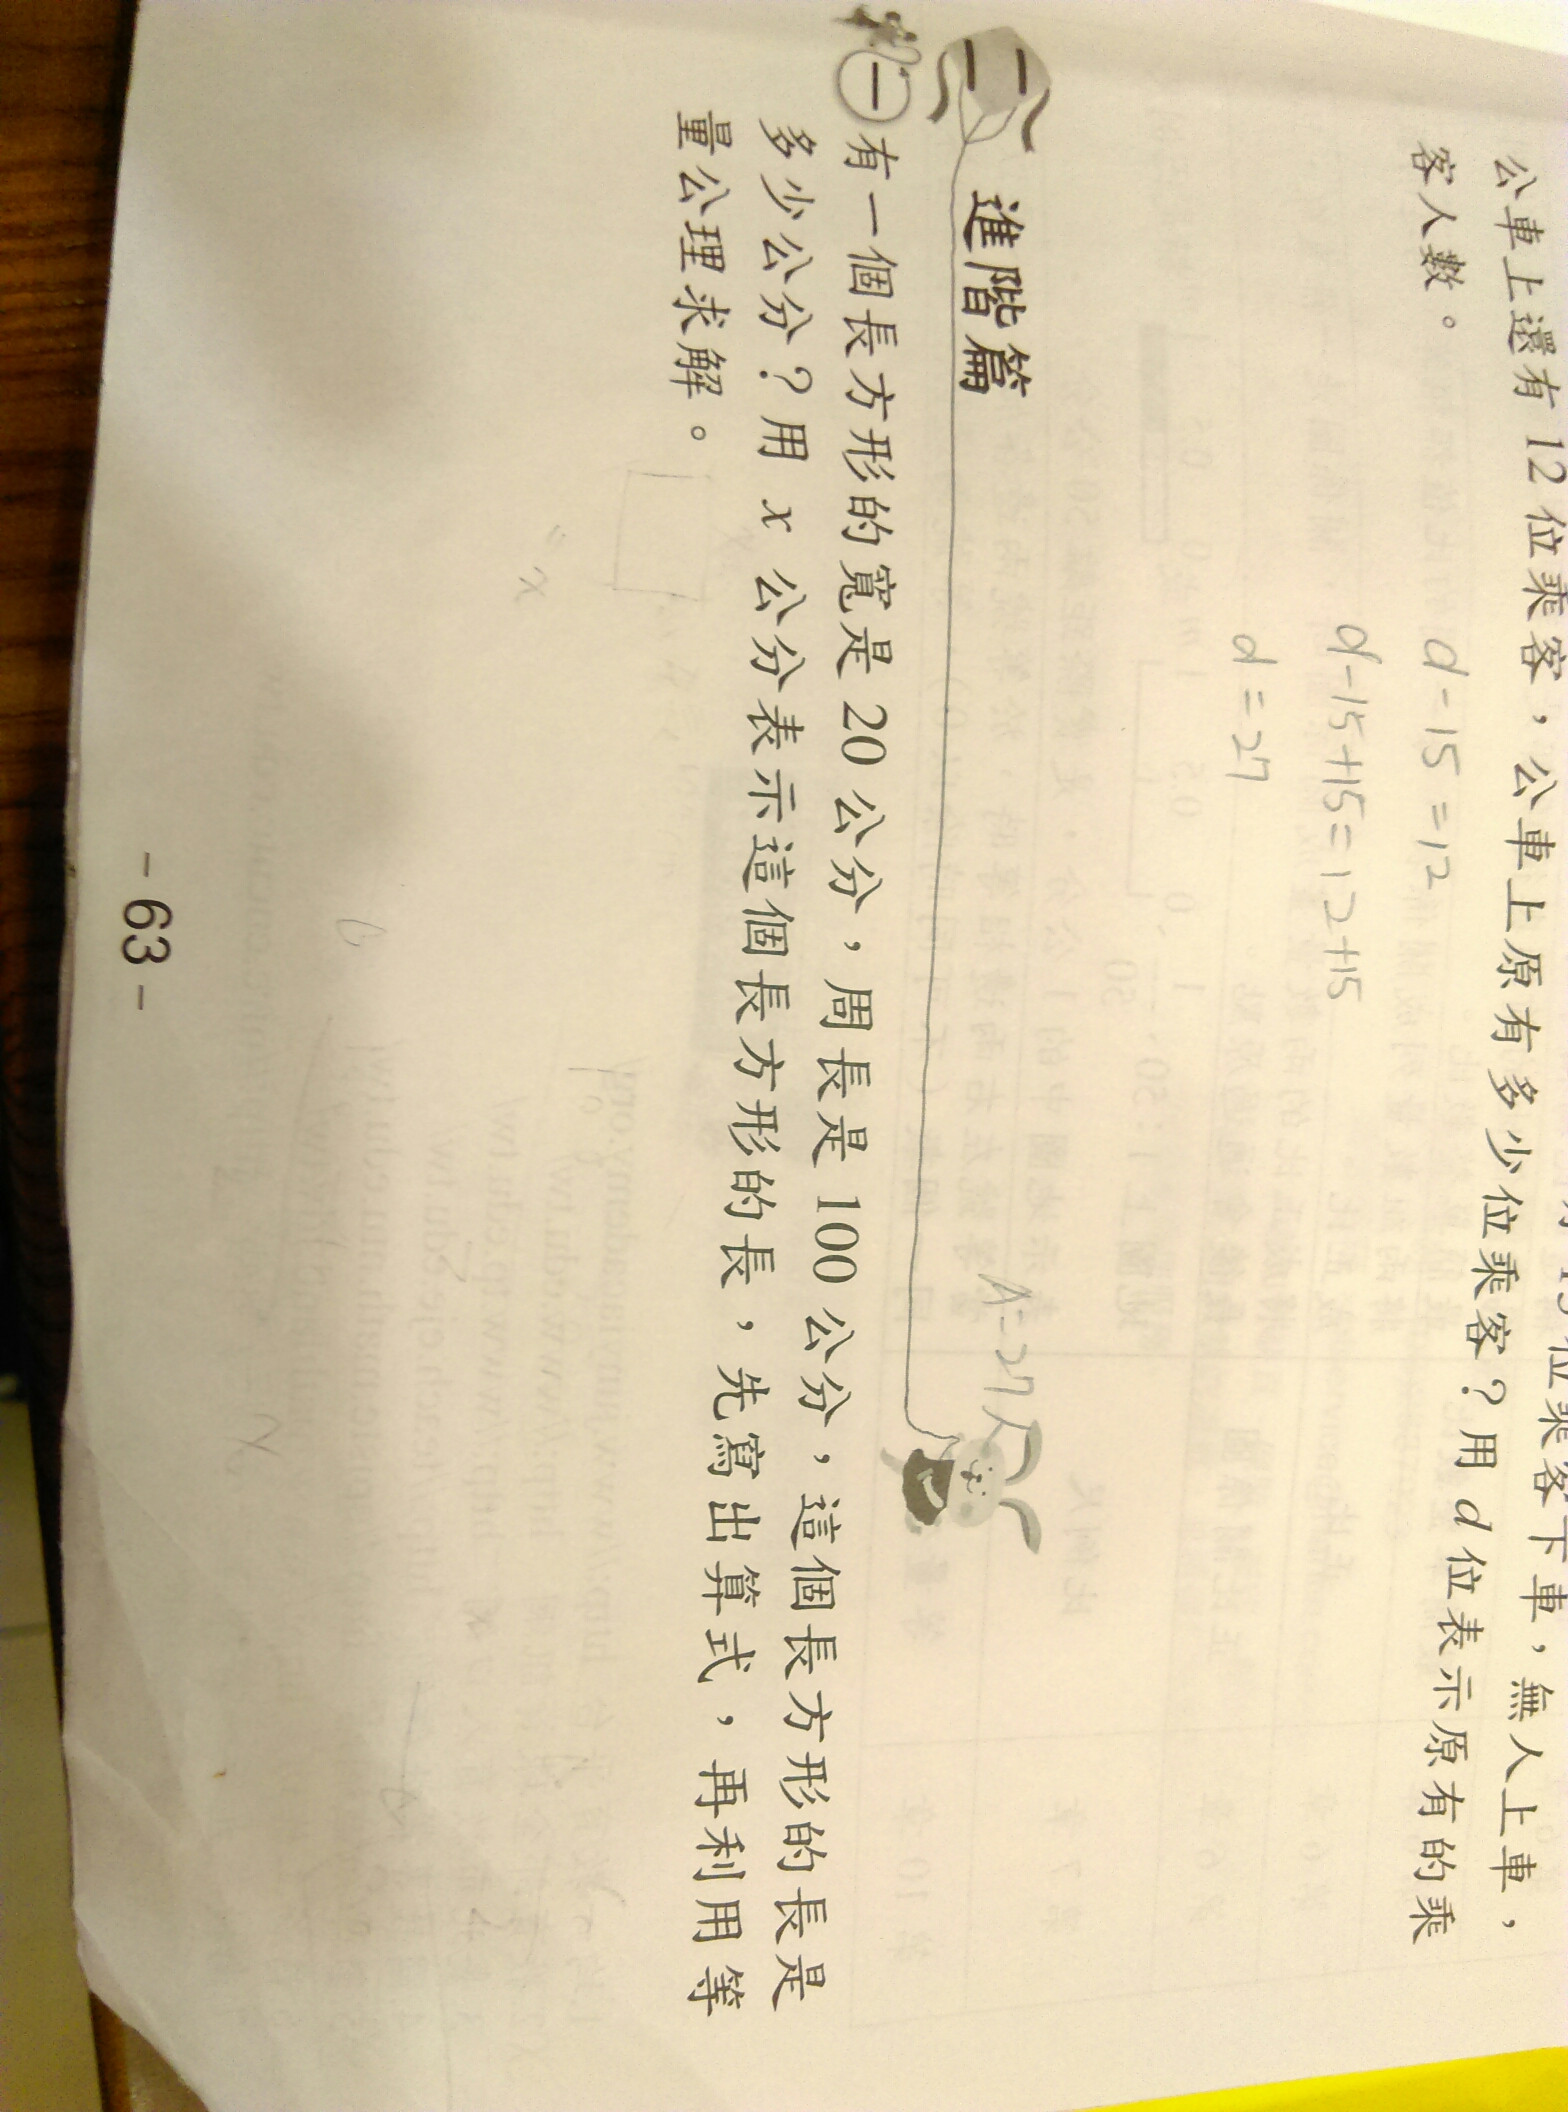 15位乘客下車，無人上車，
公車上還有12位乘客，公車上原有多少位乘客？用d位表示原有的乘
客人數。
d-15=12
d-15+15=12+15
d=27
A=27人
二 進階篇
一 有一個長方形的寬是20公分，周長是100公分，這個長方形的長是
多少公分？用x公分表示這個長方形的長，先寫出算式，再利用等
量公理求解。
-63-